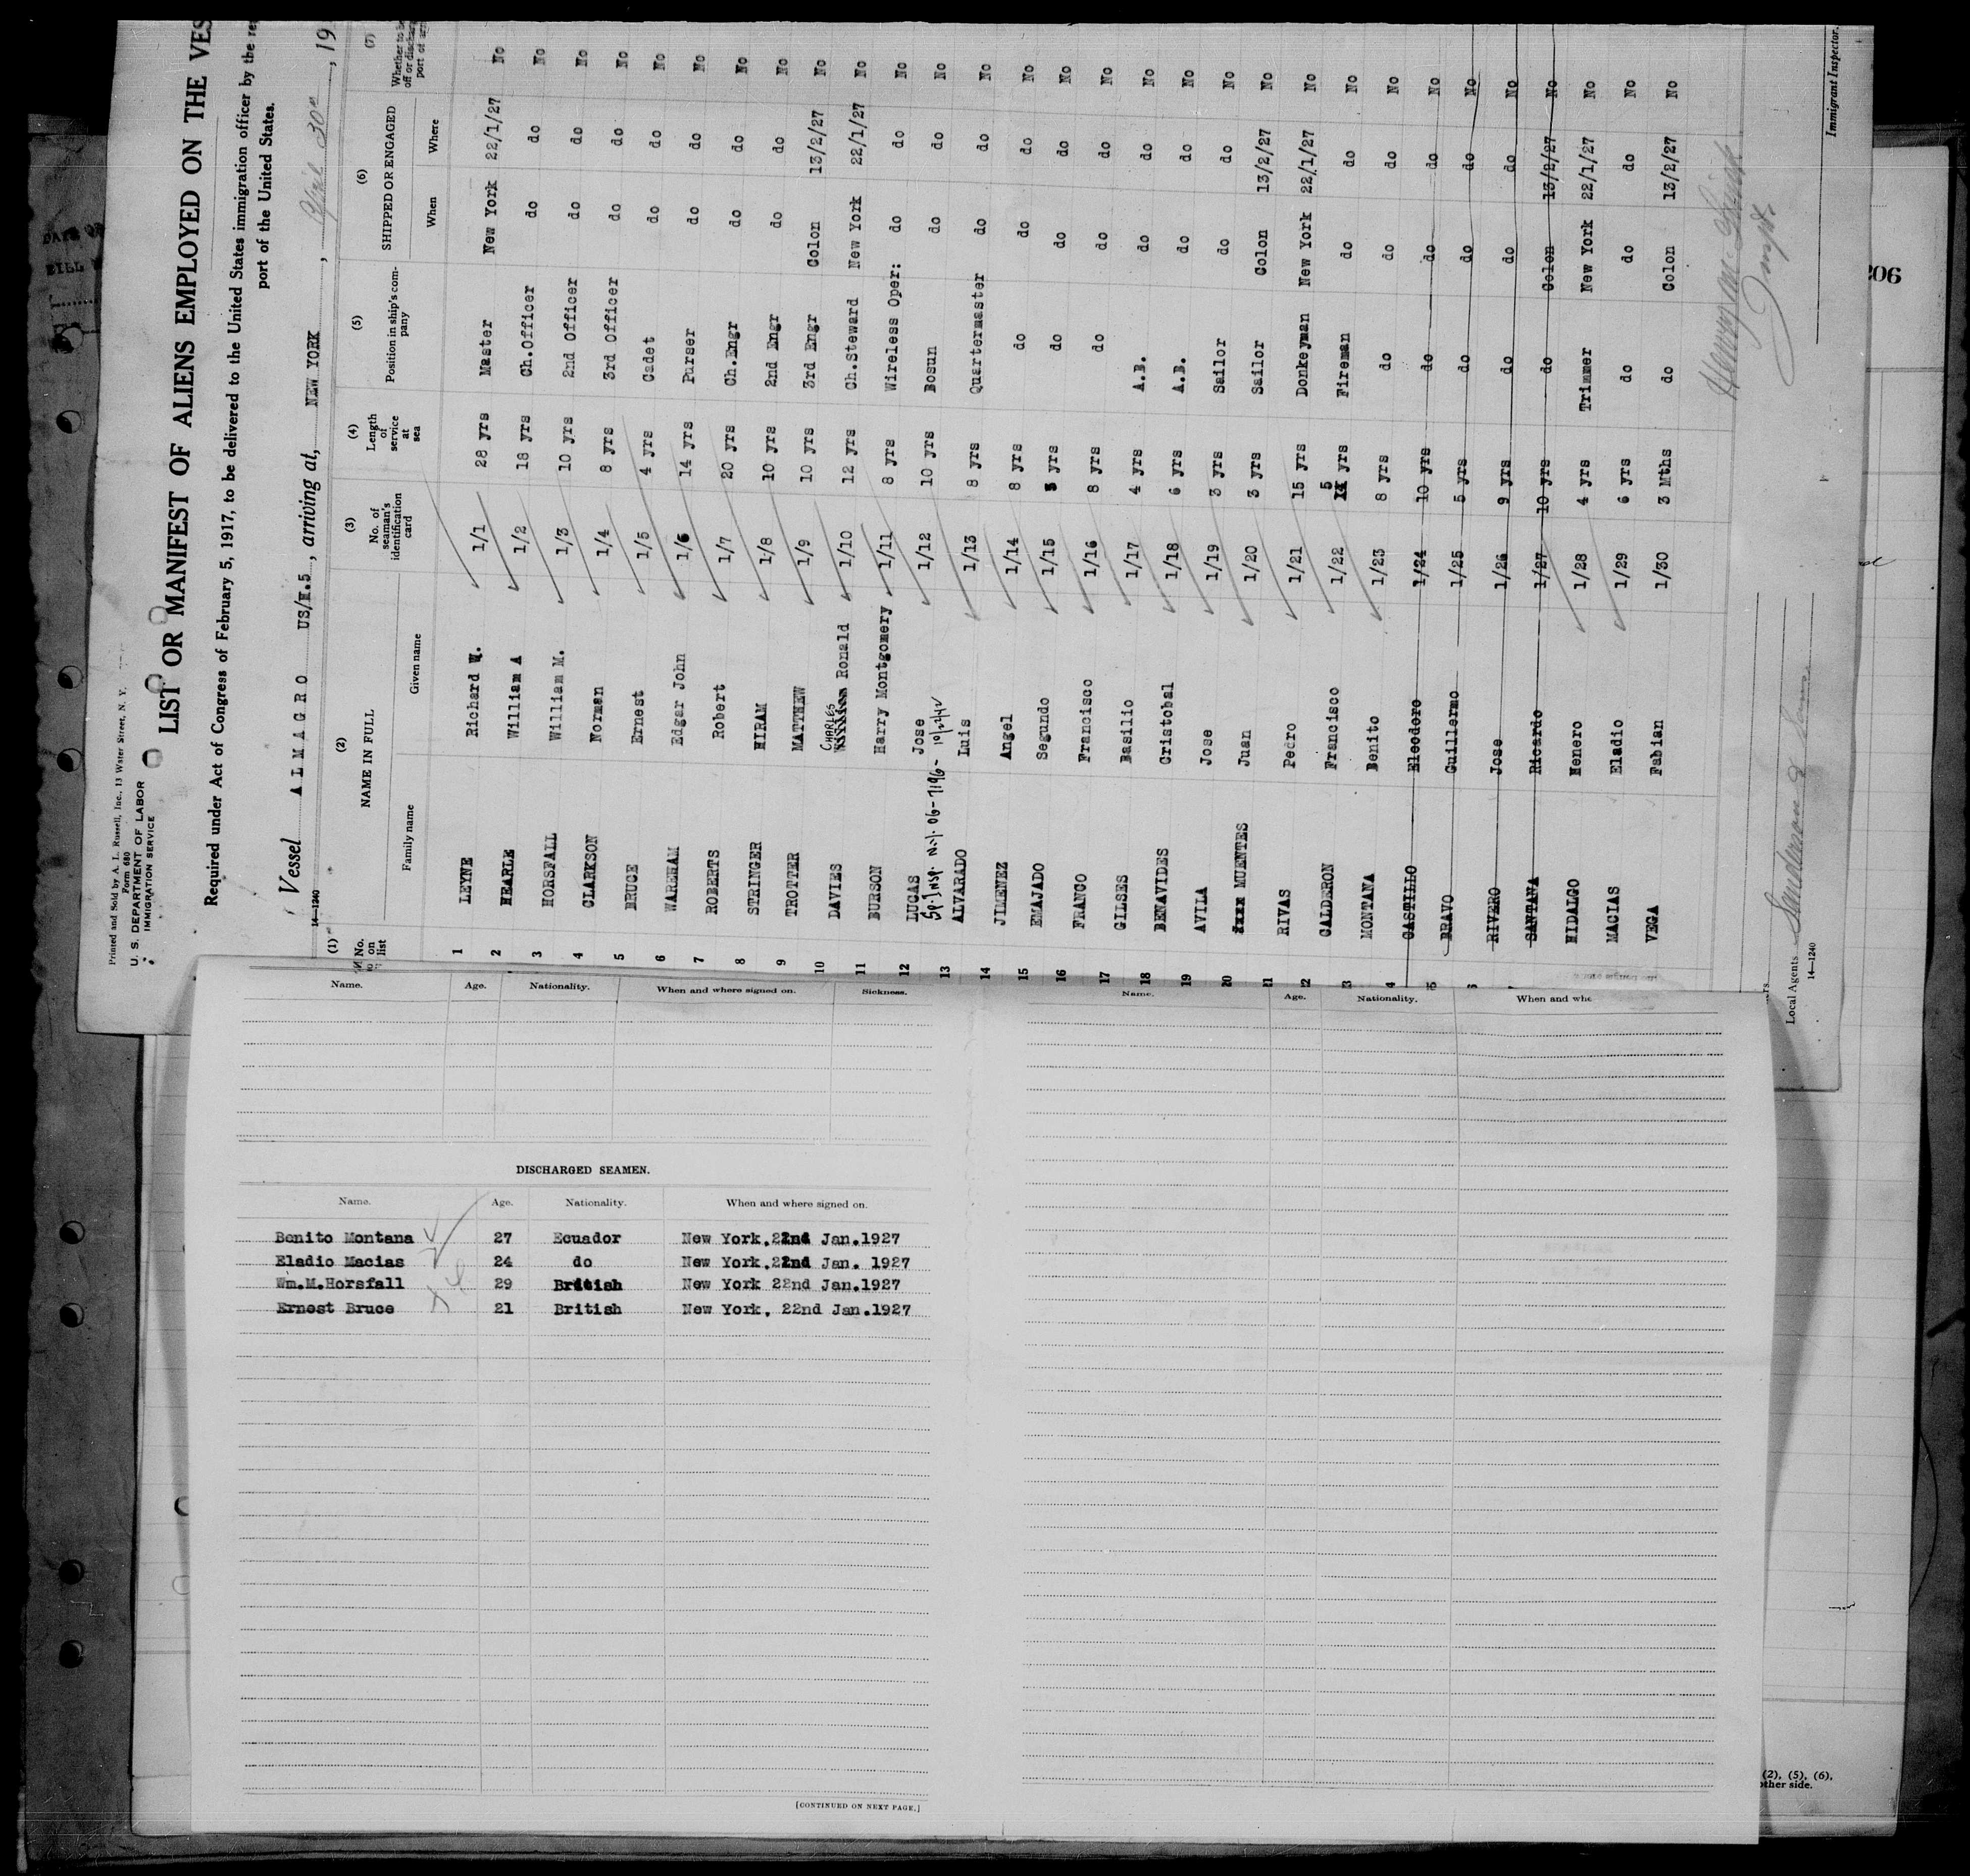 Printed and Sold by A. L. Russell, Inc., 13 Water Street, N. Y.
Form 680
U. S. DEPARTMENT OF LABOR
IMMIGRATION SERVICE
LIST OR MANIFEST OF ALIENS EMPLOYED ON THE VES
Required under Act of Congress of February 5, 1917, to be delivered to the United States immigration officer by the re
port of the United States.
Vessel ALMAGRO US/H.5, arriving at, NEW YORK, April 30th, 19
14—1240
(1) No. on list (2) NAME IN FULL Family name Given name (3) No. of seaman's identification card (4) Length of service at sea (5) Position in ship's company (6) SHIPPED OR ENGAGED When Where (7) Whether to be
1 LEYNE Richard W. 1/1 28 yrs Master New York 22/1/27 No
2 HEARLE William A 1/2 18 yrs Ch.Officer do do No
3 HORSFALL William M. 1/3 10 yrs 2nd Officer do do No
4 CLARKSON Norman 1/4 8 yrs 3rd Officer do do No
5 BRUCE Ernest 1/5 4 yrs Cadet do do No
6 WAREHAM Edgar John 1/6 14 yrs Purser do do No
7 ROBERTS Robert 1/7 20 yrs Ch.Engr do do No
8 STRINGER HIRAM 1/8 10 yrs 2nd Engr do do No
9 TROTTER MATTHEW 1/9 10 yrs 3rd Engr Colon 13/2/27 No
10 DAVIES CHARLES Ronald 1/10 12 yrs Ch.Steward New York 22/1/27 No
11 BURSON Harry Montgomery 1/11 8 yrs Wireless Oper: do do No
12 LUCAS Jose 1/12 10 yrs Bosun do do No
Sp. Insp. N.Y. 06-7196-
13 ALVARADO Luis 1/13 8 yrs Quartermaster do do No
14 JIMENEZ Angel 1/14 8 yrs do do do No
15 EMAJADO Segundo 1/15 5 yrs do do do No
16 FRANCO Francisco 1/16 8 yrs do do do No
17 GILSES Basilio 1/17 4 yrs A.B. do do No
18 BENAVIDES Cristobal 1/18 6 yrs A.B. do do No
19 AVILA Jose 1/19 3 yrs Sailor do do No
20 MUENTES Juan 1/20 3 yrs Sailor Colon 13/2/27 No
21 RIVAS Pedro 1/21 15 yrs Donkeyman New York 22/1/27 No
22 CALDERON Francisco 1/22 5 yrs Fireman do do No
3 MONTANA Benito 1/23 8 yrs do do do No
4 CASTILLO Eleodoro 1/24 10 yrs do do do No
5 BRAVO Guillermo 1/25 5 yrs do do do No
6 RIVERO Jose 1/26 9 yrs do do do No
SANTANA Ricardo 1/27 10 yrs do Colon 13/2/27 No
HIDALGO Henero 1/28 4 yrs Trimmer New York 22/1/27 No
MACIAS Eladio 1/29 6 yrs do do do No
VEGA Fabian 1/30 3 Mths do Colon 13/2/27 No
Immigrant Inspector.
Local Agents Sanderson & Sons
14—1240
306
Name. Age. Nationality. When and where signed on. Sickness.
DISCHARGED SEAMEN.
Name. Age. Nationality. When and where signed on.
Benito Montana 27 Ecuador New York.22nd Jan.1927
Eladio Macias 24 do New York.22nd Jan. 1927
Wm.M.Horsfall 29 British New York 22nd Jan.1927
Ernest Bruce 21 British New York. 22nd Jan.1927
[CONTINUED ON NEXT PAGE.]
Name. Age. Nationality. When and whe
(2), (5), (6),
other side.